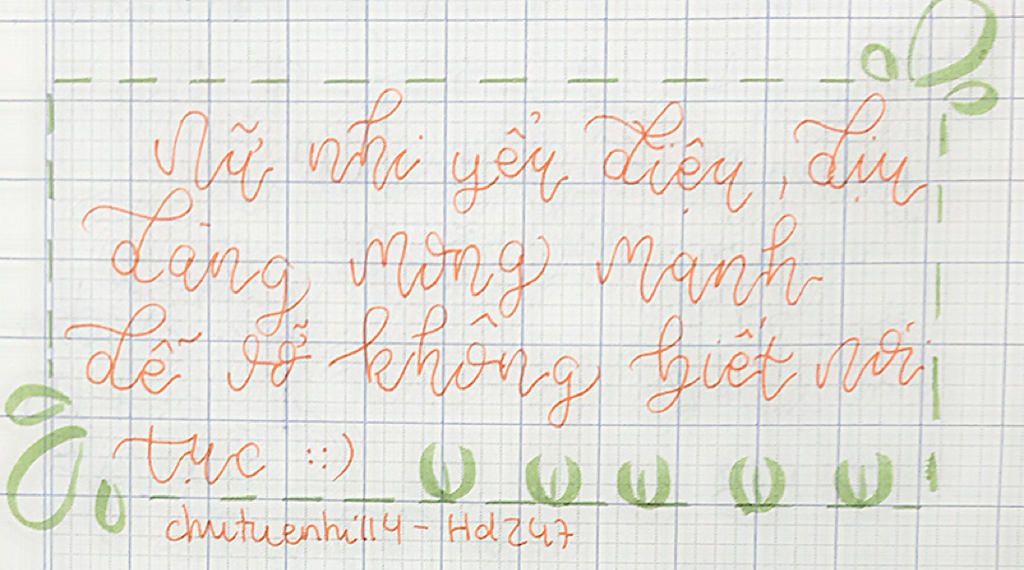 Nữ nhi yểu điệu, dịu
dàng mỏng manh
dễ vỡ không biết nói
tục ::)
chutuenhi114 - Hd247